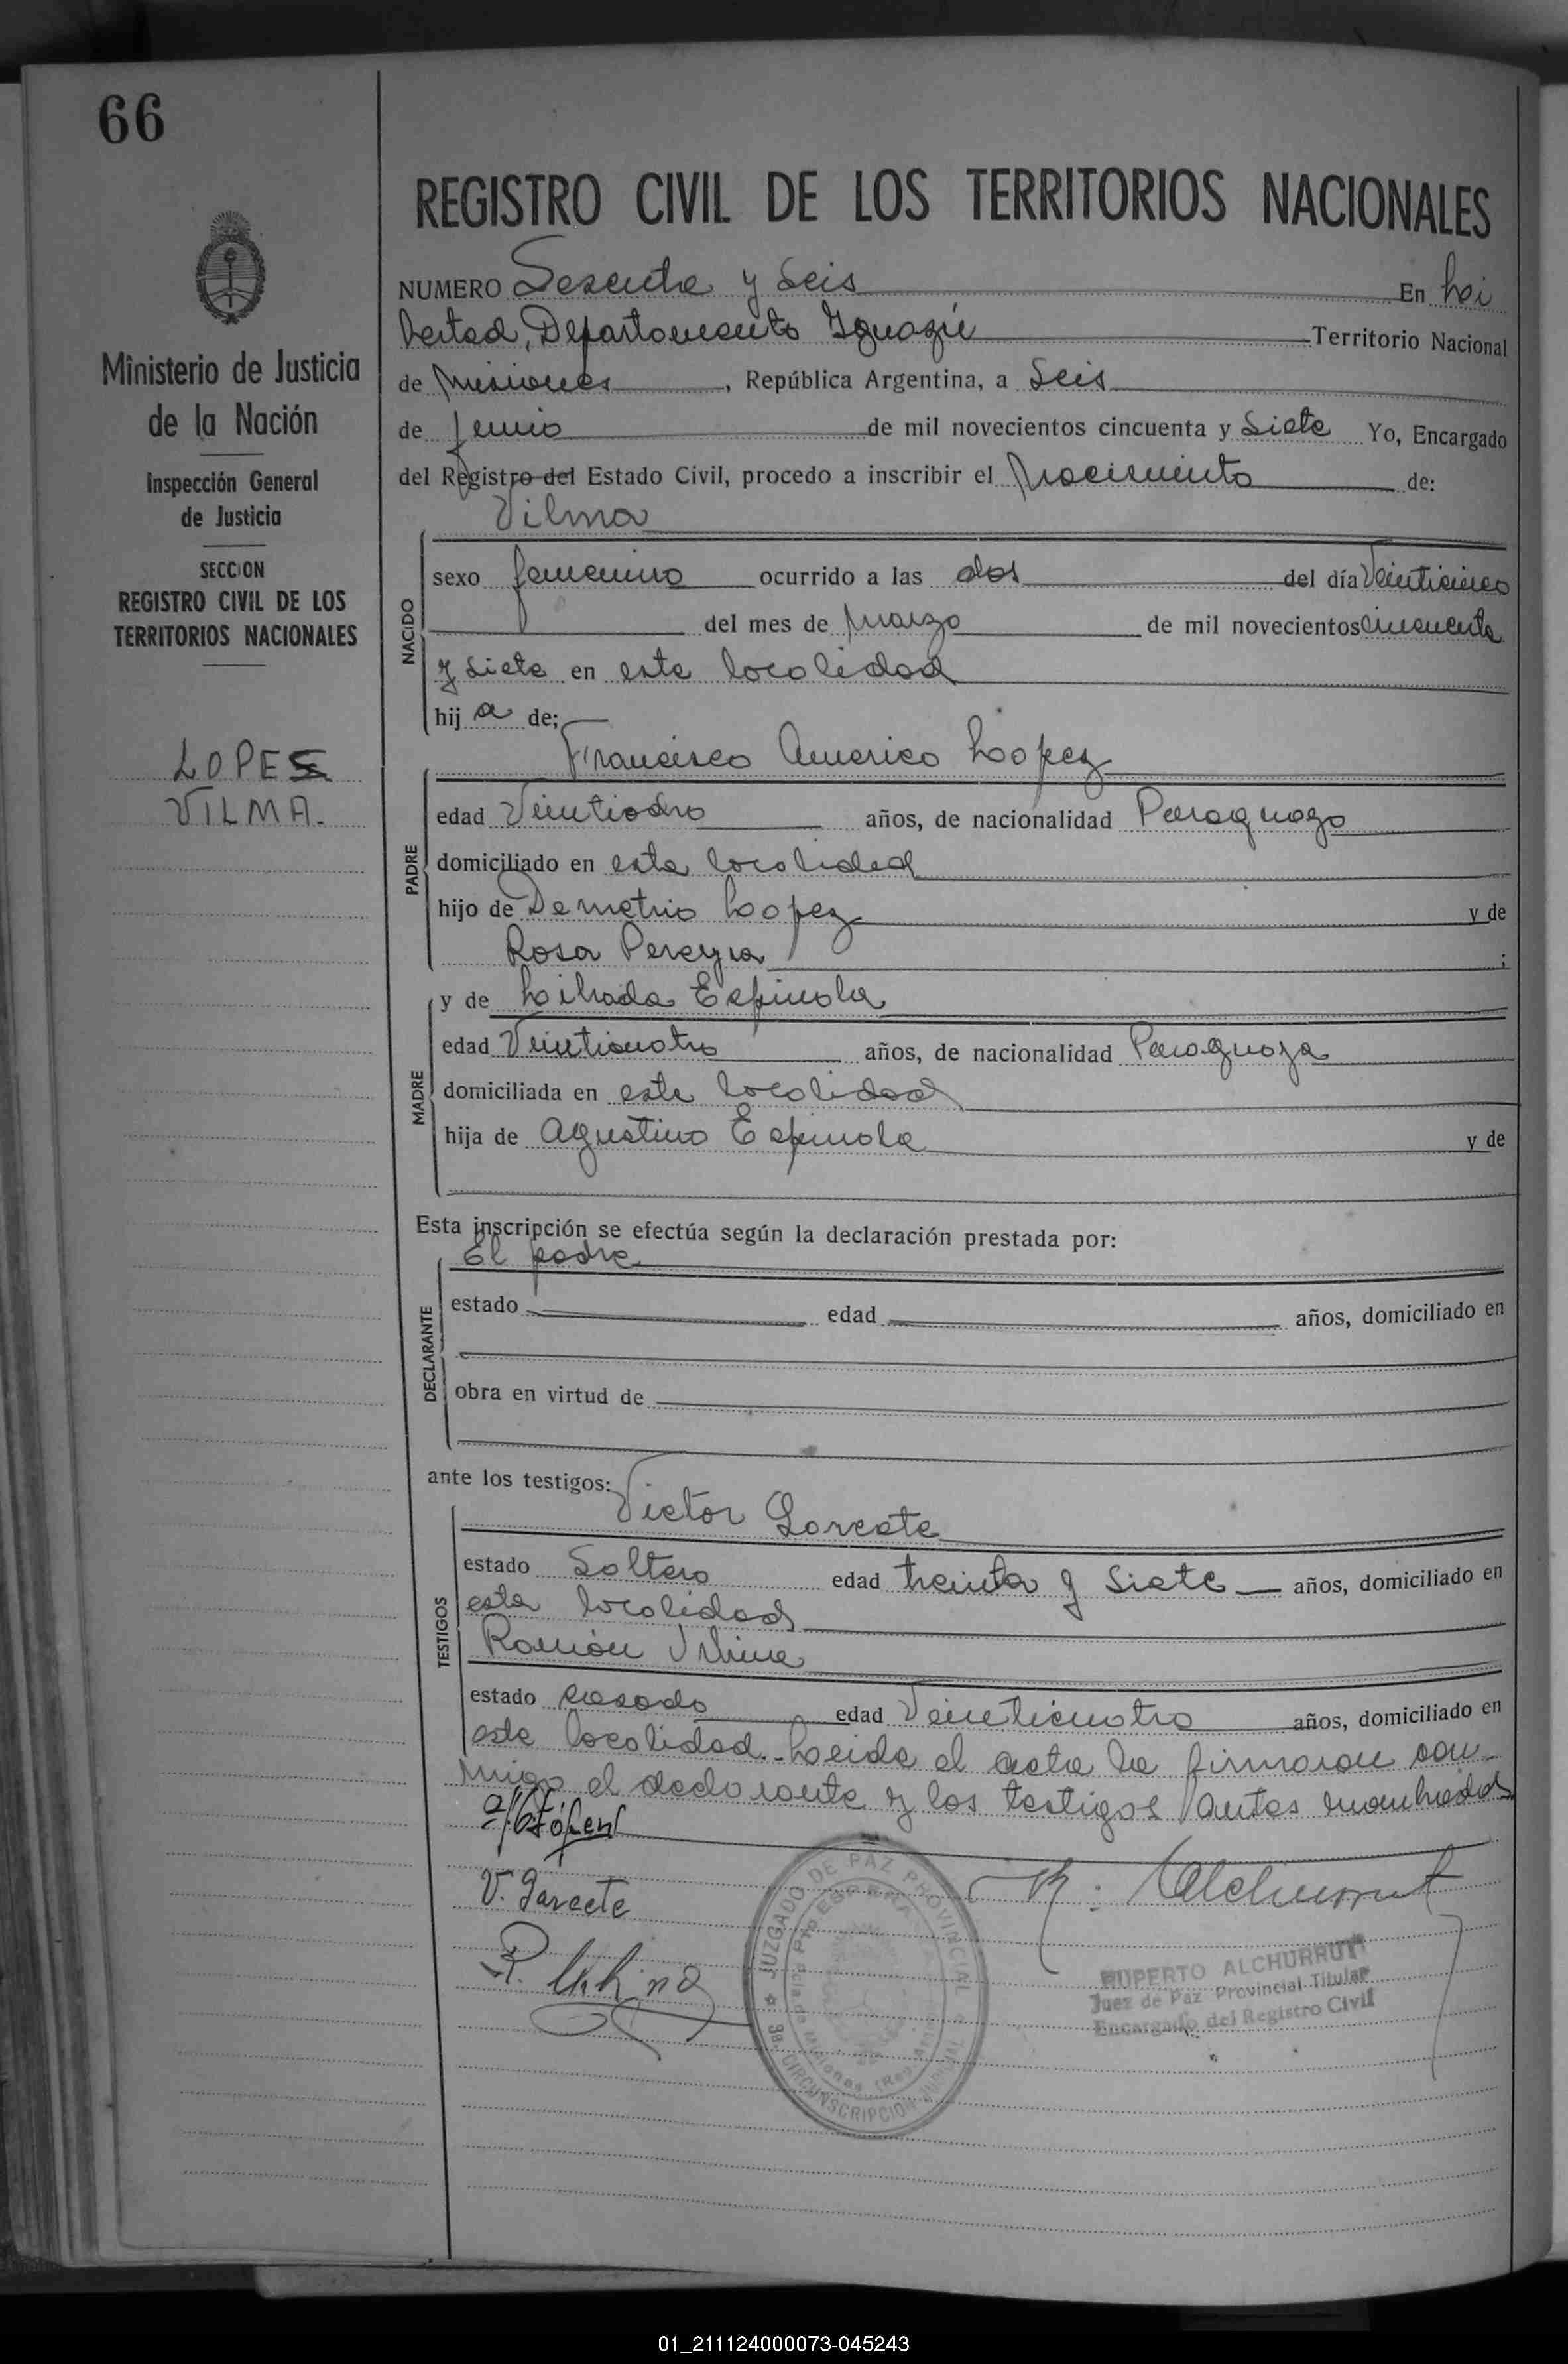 66
REGISTRO CIVIL DE LOS TERRITORIOS NACIONALES
Ministerio de Justicia
de la Nación
Inspección General
de Justicia
SECCION
REGISTRO CIVIL DE LOS
TERRITORIOS NACIONALES
LOPES
VILMA.
NUMERO Sesenta y Seis En Li
bertad, Departamento Iguazú Territorio Nacional
de Misiones, República Argentina, a Seis
de Junio de mil novecientos cincuenta y Siete Yo, Encargado
del Registro del Estado Civil, procedo a inscribir el Nacimiento de:
Vilma
NACIDO
sexo femenino ocurrido a las dos del día Veinticinco
del mes de Marzo de mil novecientos cincuenta
y siete en esta localidad
hij a de;
Francisco Americo Lopez
PADRE
edad años, de nacionalidad Paraguayo
domiciliado en esta localidad
hijo de Demetrio Lopez y de
Rosa Pereyra ;
y de Librada Espinola
MADRE
edad Veinticuatro años, de nacionalidad Paraguaya
domiciliada en esta localidad
hija de Agustino Espinola y de
Esta inscripción se efectúa según la declaración prestada por:
El padre
DECLARANTE
estado edad años, domiciliado en
obra en virtud de
ante los testigos:
Victor Gareete
TESTIGOS
estado Soltero edad treinta y Siete años, domiciliado en
esta localidad
Ramón Urbina
estado casado edad Veinticuatro años, domiciliado en
esta localidad. Leida el acta la firmaron con-
migo el declarante y los testigos antes nombrados
V. Gareete
R. Urbina
R. Alchurrut
JUZGADO DE PAZ PROVINCIAL
3a. CIRCUNSCRIPCION JUDICIAL
Pto ESPERANZA
RUPERTO ALCHURRUT
Juez de Paz Provincial Titular
Encargado del Registro Civil
01_211124000073-045243